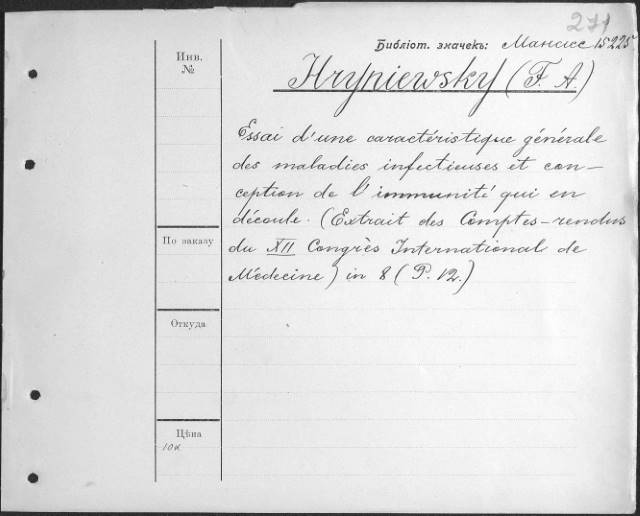 271
Библіот. значекъ: Мансис 15225
Инв.
№
Hryniewsky (F. A.)
Essai d'une caractéristique générale
des maladies infectieuses et con-
ception de l'immunité qui en
découle. (Extrait des Comptes-rendus
du XII Congrès International de
Médecine) in 8 (P. 12.)
По заказу
Откуда
Цѣна
10к